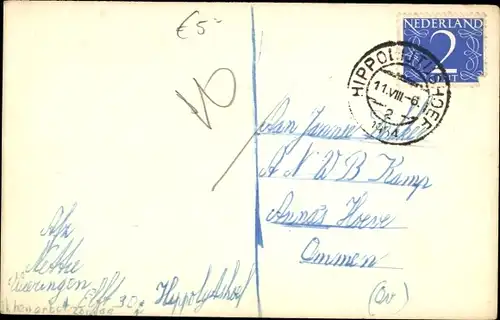 €5-
NEDERLAND
2
CENT
HIPPOLYTUSHOEF
11.VIII-6.
2
1954
10
Aan Jannie
A N W B Kamp
Anna's Hoeve
Ommen
(Ov)
Afz
Wieringen
Elft 30
Hippolytushoef